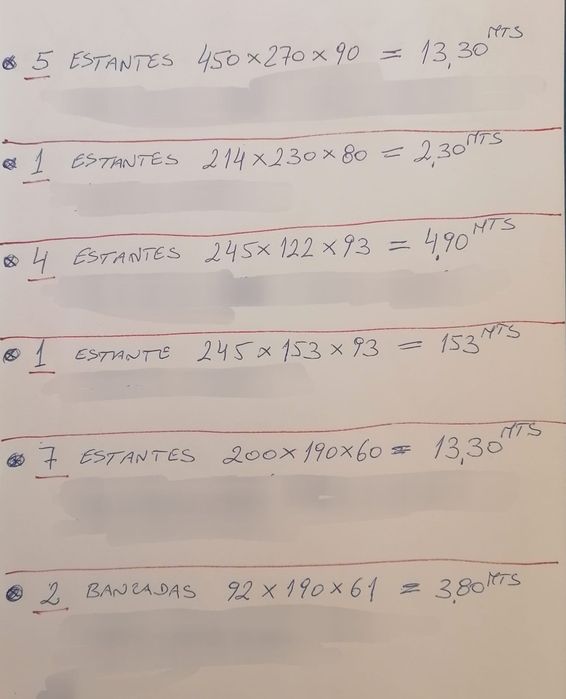 5 ESTANTES 450×270×90 = 13,30 MTS
1 ESTANTES 214×230×80 = 2,30 MTS
4 ESTANTES 245×122×93 = 4,90 MTS
1 ESTANTE 245×153×93 = 153 MTS
7 ESTANTES 200×190×60 = 13,30 MTS
2 BANCADAS 92×190×61 = 3,80 MTS